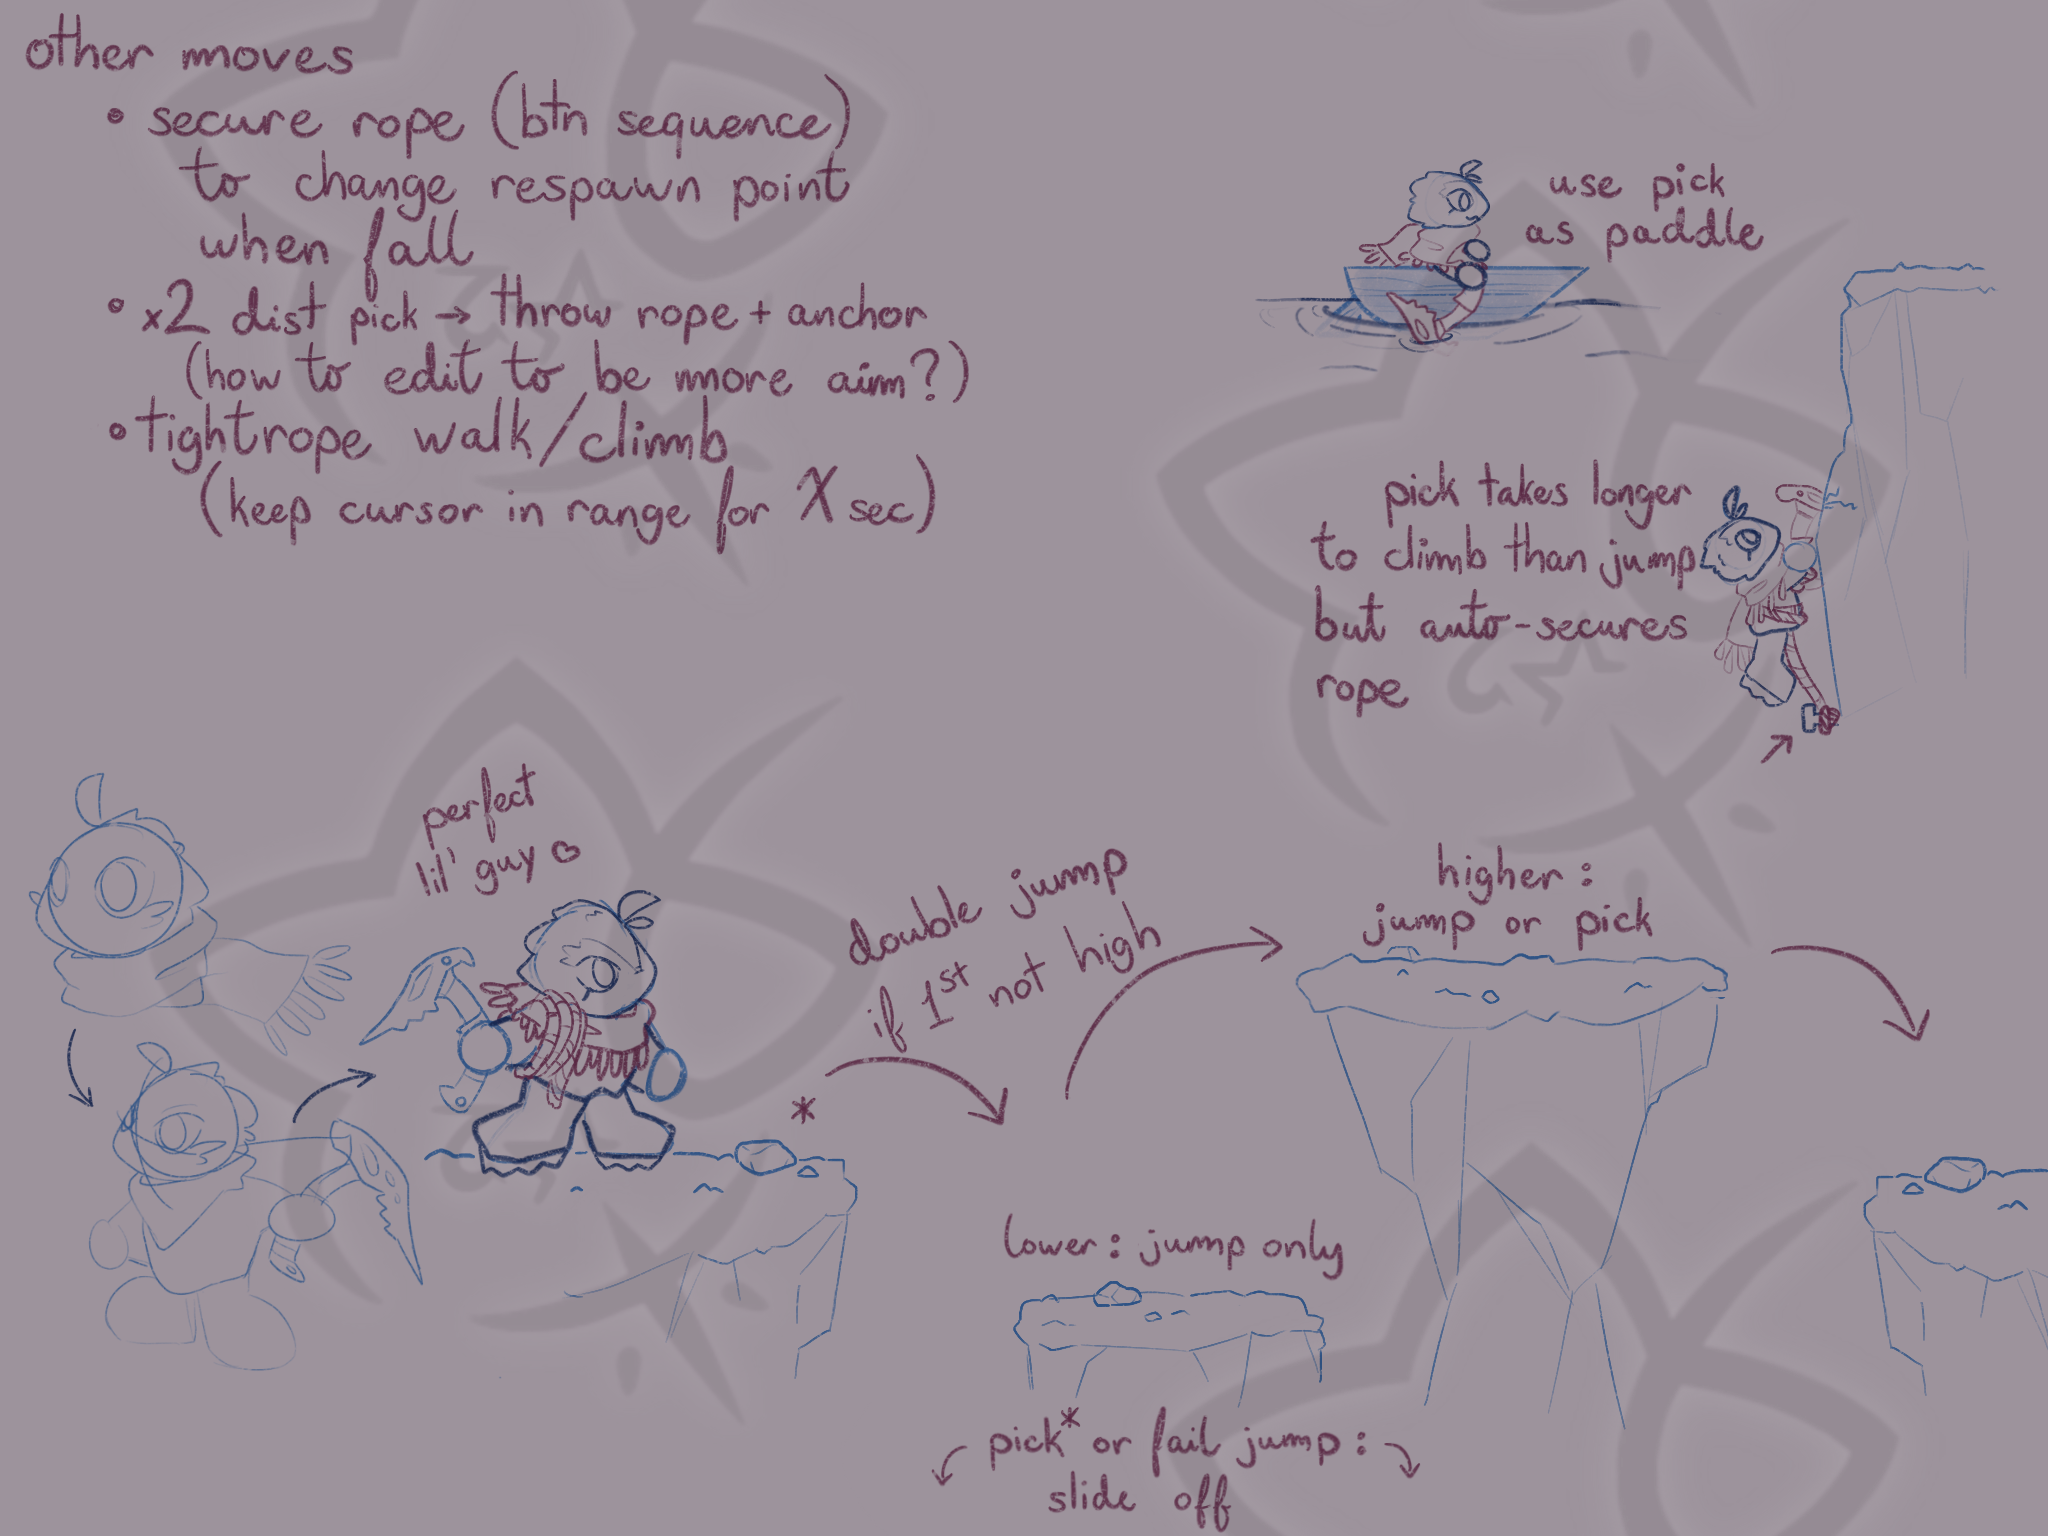 other moves
• secure rope (btn sequence)
to change respawn point
when fall
• x2 dist pick → throw rope + anchor
(how to edit to be more aim?)
• tightrope walk/climb
(keep cursor in range for X sec)
use pick
as paddle
pick takes longer
to climb than jump
but auto-secures
rope
perfect
lil' guy ♡
double jump
if 1st not high
*
higher:
jump or pick
lower: jump only
pick* or fail jump:
slide off